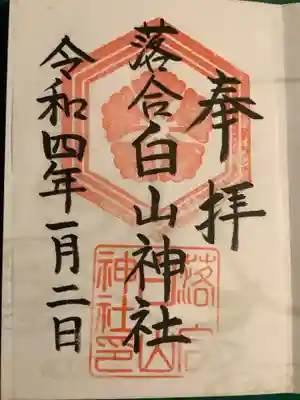 奉拝
落合白山神社
令和四年一月二日
落合白山神社印